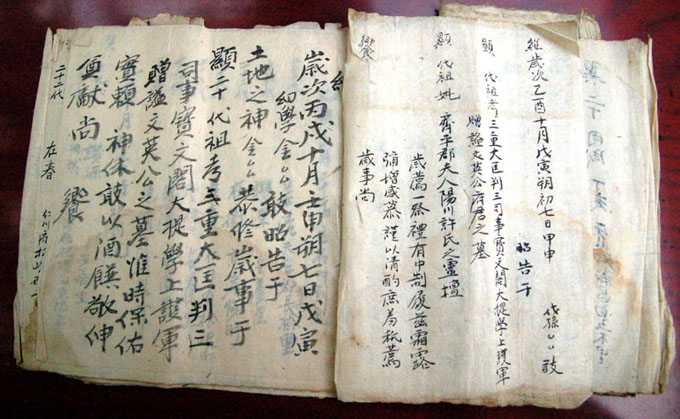 維歲次乙酉十月戊寅朔初七日甲申
代孫厶厶敢
昭告于
顯 代祖考三重大匡判三司事寶文閣大提學上護軍
贈謚文英公府君之墓
顯 代祖妣 齊平郡夫人陽川許氏之靈壇
歲薦一祭禮有中制履茲霜露
彌增感慕謹以清酌庶羞祗薦
歲事尚
饗
歲次丙戌十月壬申朔七日戊寅
幼學金厶厶 敢昭告于
土地之神金厶厶恭修歲事于
顯二十代祖考三重大匡判三
司事寶文閣大提學上護軍
贈謚文英公之墓維時保佑
實賴 神休敢以酒饌敬伸
奠獻尚 饗
二十二代 在春